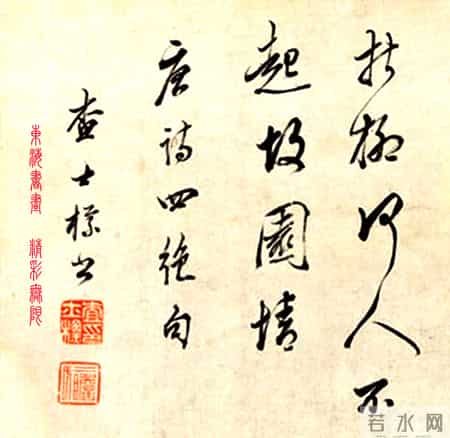 折柳何人不
起故園情
唐詩四絕句
查士標書
東海書畫 精彩無限
若水网